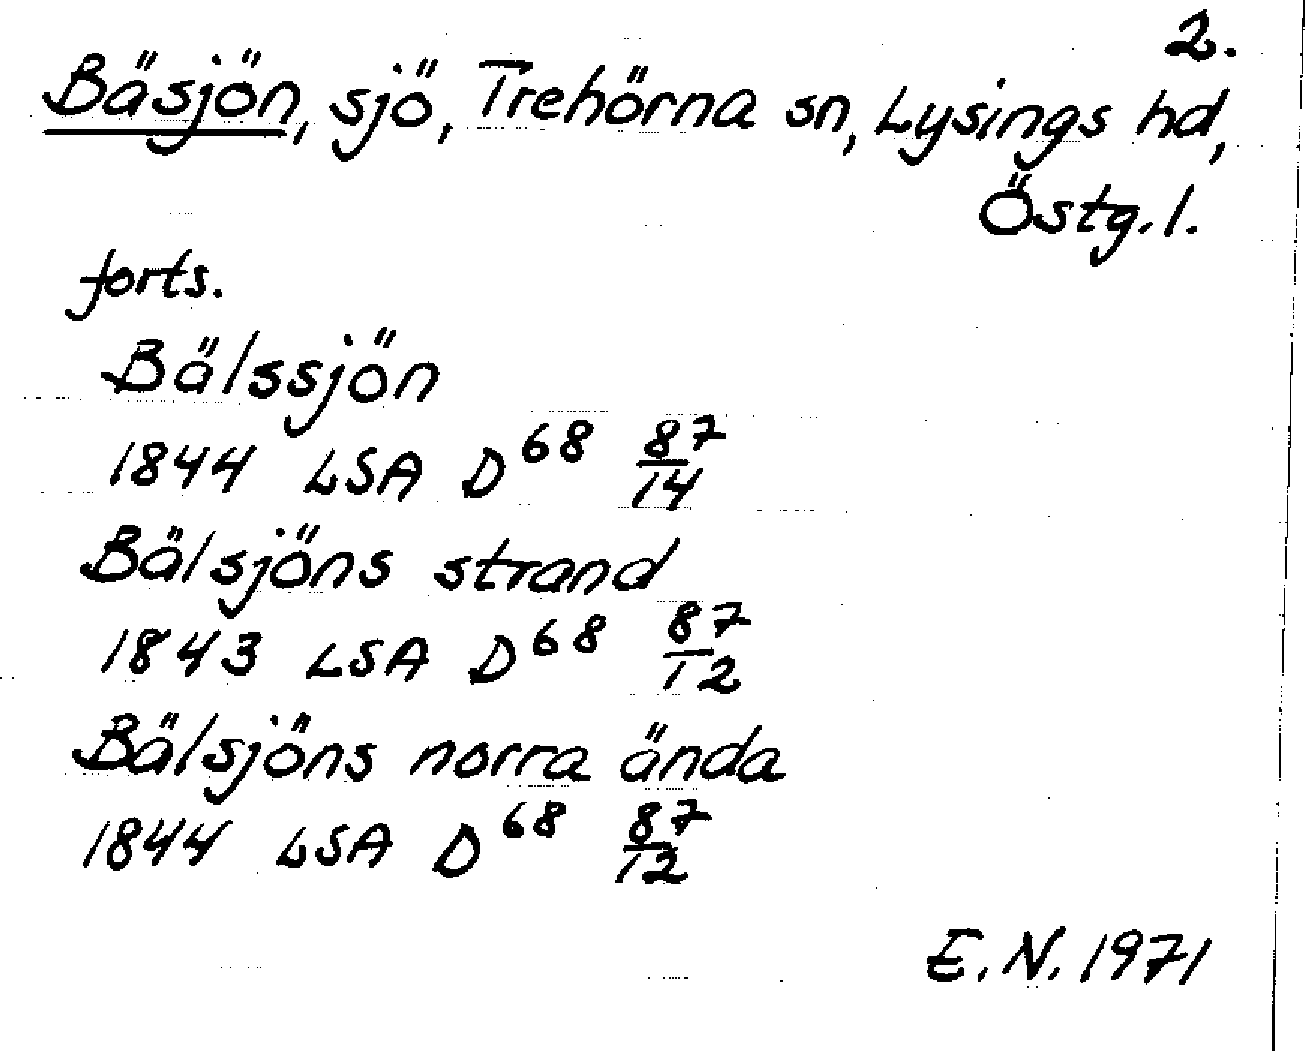 2.
Bäsjön, sjö, Trehörna sn, Lysings hd,
Östg. l.
forts.
Bälssjön
1844 LSA D⁶⁸ 87/14
Bälsjöns strand
1843 LSA D⁶⁸ 87/12
Bälsjöns norra ända
1844 LSA D⁶⁸ 87/12
E. N. 1971